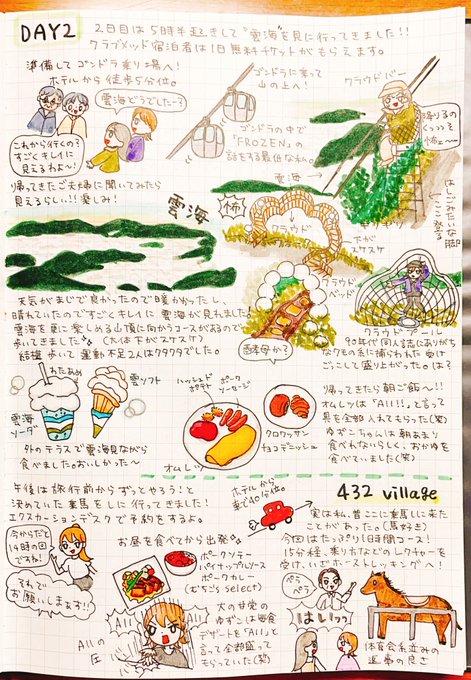 DAY2
2日目は5時半起きして"雲海"を見に行ってきました!!
クラブメッド宿泊者は1日無料チケットがもらえます。
準備してゴンドラ乗り場へ!
ホテルから徒歩5分位。
雲海どうでしたー?
これから行くの?
すごくキレイに
見えるわよ〜!
帰ってきたご夫婦に聞いてみたら
見えるらしい!!楽しみ!
ゴンドラに乗って
山の上へ!
ゴンドラの中で
「FROZEN」の
話をする最低な私。
クラウドバー
降りるの
くっっっそ
怖ェ〜
はしごみたいな脚
ここ登る
雲海
雲海
怖
クラウド
下が
スケスケ
クラウド
ベッド
クラウドプール
天気がまじで良かったので暖かかったし、
晴れていたのですごくキレイに雲海が見れました。
雲海を更に楽しめる山頂に向かうコースがあるので
歩いてきました
結構歩いて運動不足2人はクタクタでした。
酵母か?
90年代同人誌にありがち
なクモの糸に捕らわれた受け
ごっこして盛り上がった。は?
わたあめ
雲ソフト
雲海
ソーダ
外のテラスで雲海見ながら
食べました。おいしかった〜
ハッシュド
ポテト
ポーク
ソーセージ
オムレツ
クロワッサン
チョコデニッシュ
帰ってきたら朝ご飯〜!!
オムレツは「All!!」と言って
具を全部入れてもらった(笑)
ゆずこちゃんは朝あまり
食べれないらしく、おかゆを
食べていました(笑)
午後は旅行前からずっとやろう!と
決めていた乗馬をしに行ってきました!
エクスカーションデスクで予約をするよ。
ホテルから
車で10分位。
432 village
実は私、昔ここに乗馬しに来た
ことがあった。(馬好き)
今回はたっぷり1日時間コース!
15分程、乗り方などのレクチャーを
受け、いざホーストレッキングへ!
今からだと
14時の回
ですね!
それで
お願いします!!
お昼を食べてから出発
ポークソテー
パイナップルソース
ポークカレー
All
All
Allの
圧
大の甘党の
ゆずこは毎食
デザートを「All」と
言って全部盛って
もらっていた(笑)
ペラ
ペラ
はいっっ
体育会系並みの
返事の良さ